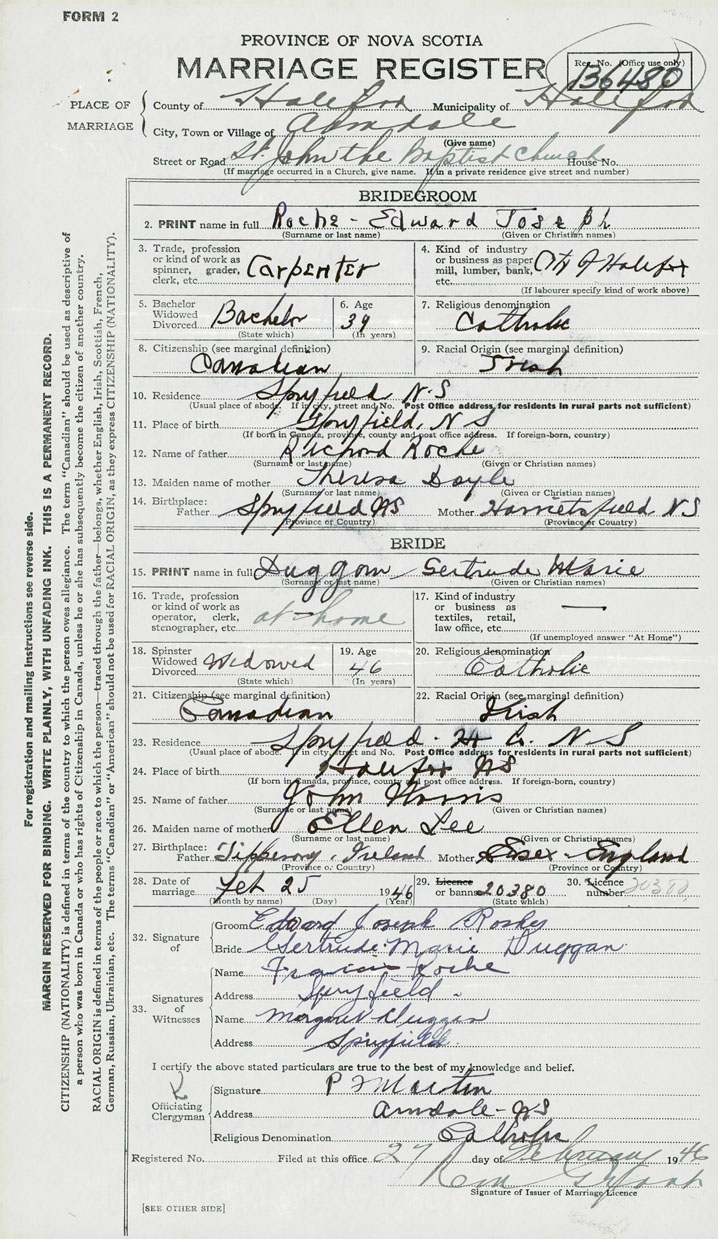 FORM 2
PROVINCE OF NOVA SCOTIA
MARRIAGE REGISTER
Reg. No. (Office use only)
136480
PLACE OF MARRIAGE
County of Halifax Municipality of Halifax
City, Town or Village of Armdale
(Give name)
Street or Road St. John the Baptist Church House No.
(If marriage occurred in a Church, give name. If in a private residence give street and number)
BRIDEGROOM
2. PRINT name in full Roche - Edward Joseph
(Surname or last name) (Given or Christian names)
3. Trade, profession or kind of work as spinner, grader, clerk, etc. Carpenter
4. Kind of industry or business as paper mill, lumber, bank, etc. City of Halifax
(If labourer specify kind of work above)
5. Bachelor Widowed Divorced Bachelor
(State which)
6. Age 39
(In years)
7. Religious denomination Catholic
8. Citizenship (see marginal definition) Canadian
9. Racial Origin (see marginal definition) Irish
10. Residence Spryfield N.S
(Usual place of abode. If in city, street and No. Post Office address for residents in rural parts not sufficient)
11. Place of birth Spryfield, N S
(If born in Canada, province, county and post office address. If foreign-born, country)
12. Name of father Richard Roche
(Surname or last name) (Given or Christian names)
13. Maiden name of mother Theresa Doyle
(Surname or last name) (Given or Christian names)
14. Birthplace: Father Spryfield NS Mother Harrietsfield NS
(Province or Country) (Province or Country)
BRIDE
15. PRINT name in full Duggan Gertrude Marie
(Surname or last name) (Given or Christian names)
16. Trade, profession or kind of work as operator, clerk, stenographer, etc. at home
17. Kind of industry or business as textiles, retail, law office, etc. —
(If unemployed answer "At Home")
18. Spinster Widowed Divorced Widowed
(State which)
19. Age 46
(In years)
20. Religious denomination Catholic
21. Citizenship (see marginal definition) Canadian
22. Racial Origin (see marginal definition) Irish
23. Residence Spryfield - Hx Co. N S
(Usual place of abode. If in city, street and No. Post Office address for residents in rural parts not sufficient)
24. Place of birth Halifax NS
(If born in Canada, province, county and post office address. If foreign-born, country)
25. Name of father John Norris
(Surname or last name) (Given or Christian names)
26. Maiden name of mother Ellen Lee
(Surname or last name) (Given or Christian names)
27. Birthplace: Father Tipperary, Ireland Mother Essex - England
(Province or Country) (Province or Country)
28. Date of marriage Feb 25 1946
(Month by name) (Day) (Year)
29. Licence or banns 20380
(State which)
30. Licence number 20380
32. Signature of
Groom Edward Joseph
Bride Gertrude Marie Duggan
33. Signatures of Witnesses
Name Francis Roche
Address Spryfield
Name Margaret Duggan
Address Spryfield
I certify the above stated particulars are true to the best of my knowledge and belief.
Officiating Clergyman
Signature P F Martin
Address Armdale - NS
Religious Denomination Catholic
Registered No. Filed at this office 27 day of February 1946
Signature of Issuer of Marriage Licence
[SEE OTHER SIDE]
For registration and mailing instructions see reverse side.
MARGIN RESERVED FOR BINDING. WRITE PLAINLY, WITH UNFADING INK. THIS IS A PERMANENT RECORD.
CITIZENSHIP (NATIONALITY) is defined in terms of the country to which the person owes allegiance. The term "Canadian" should be used as descriptive of
a person who was born in Canada or who has rights of Citizenship in Canada, unless he or she has subsequently become the citizen of another country.
RACIAL ORIGIN is defined in terms of the people or race to which the person—traced through the father—belongs, whether English, Irish, Scottish, French,
German, Russian, Ukrainian, etc. The terms "Canadian" or "American" should not be used for RACIAL ORIGIN, as they express CITIZENSHIP (NATIONALITY).